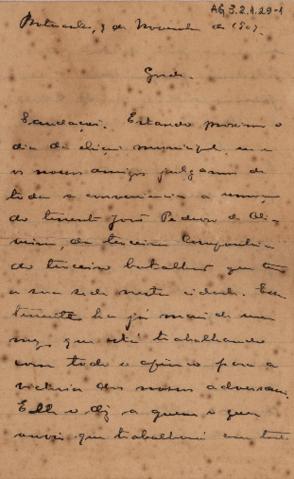 AG 3.2.1.29-1
Botucatu, 9 de Novembro de 1907.
Saudações. Estando proximo o
dia da eleição municipal
os nossos amigos julgam de
toda a conveniencia a remoção
do tenente José Pedroso de Oli-
veira, da terceira Companhia
do terceiro batalhão que tem
a sua sede nesta cidade. Esse
tenente ha já mais de um
mez que está trabalhando
com todo o afinco para a
victoria dos nossos adversarios.
Elle diz a quem o quer
ouvir que trabalhará com todo